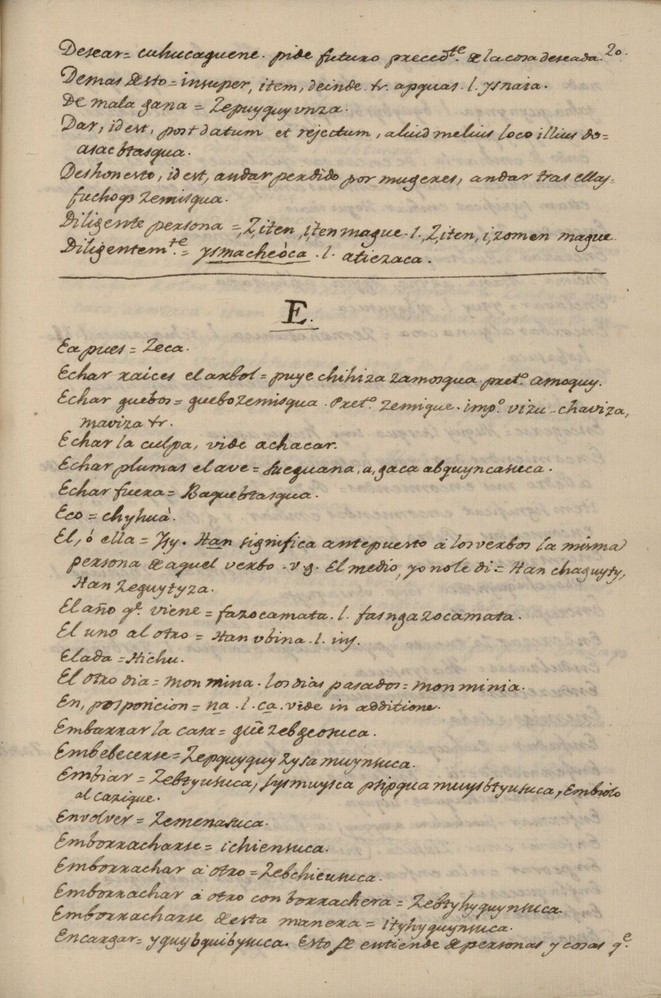 20.
Desear = cuhucaguene. pide futuro preced.te de la cosa deseada.
Demas desto = insuper, item, deinde. tr. apquas. l. ysnaia.
De mala gana = Zepuyquy vnza.
Dar, id est, post datum et rejectum, aluid melius loco illius do=
asac btasqua.
Deshonesto, id est, andar perdido por mugeres, andar tras ellas=
fuchoqs zemisqua.
Diligente persona = Ziten, iten mague. l. Ziten, izomen mague.
Diligentem.te = ysmacheòca. l. atiezaca.
E.
Ea pues = Zeca.
Echar raices el arbol = puye chihiza zamosqua. pret.o amoquy.
Echar guebos = guebo zemisqua. Pret.o zemique. imp.o vizu - chaviza,
maviza tr.
Echar la culpa, vide achacar.
Echar plumas el ave = sueguana, a, gaca abquyncasuca.
Echar fuera = Baque btasqua.
Eco = chyhuà.
El, ó ella = Ysy. Han significa antepuesto a los verbos la misma
persona de aquel verbo. v.g. El me dio, yo no le di = Han chaguyty,
Han zeguytyza.
El año q.e viene = fazocamata. l. fasnga zocamata.
El uno al otro = Han vbina. l. iys.
Elada = Hichu.
El otro dia = mon mina. los dias pasados = mon minia.
En, posposicion = na. l. ca. vide in additione.
Embarrar la casa = güe zebgcosuca.
Embebecerse = Zepquyquy zysa muynsuca.
Embiar = Zebtyusuca, sys muysca psipqua muysbtyusuca, Embiolo
al cazique.
Envolver = Zemenasuca.
Emborracharse = ichiensuca.
Emborrachar a otro = Zebchieusuca.
Emborrachar a otro con borrachera = Zebtyhyquynsuca.
Emborracharse de esta manera = ityhyquynsuca.
Encargar = yquy bquibysuca. Esto se entiende de personas y cosas q.e